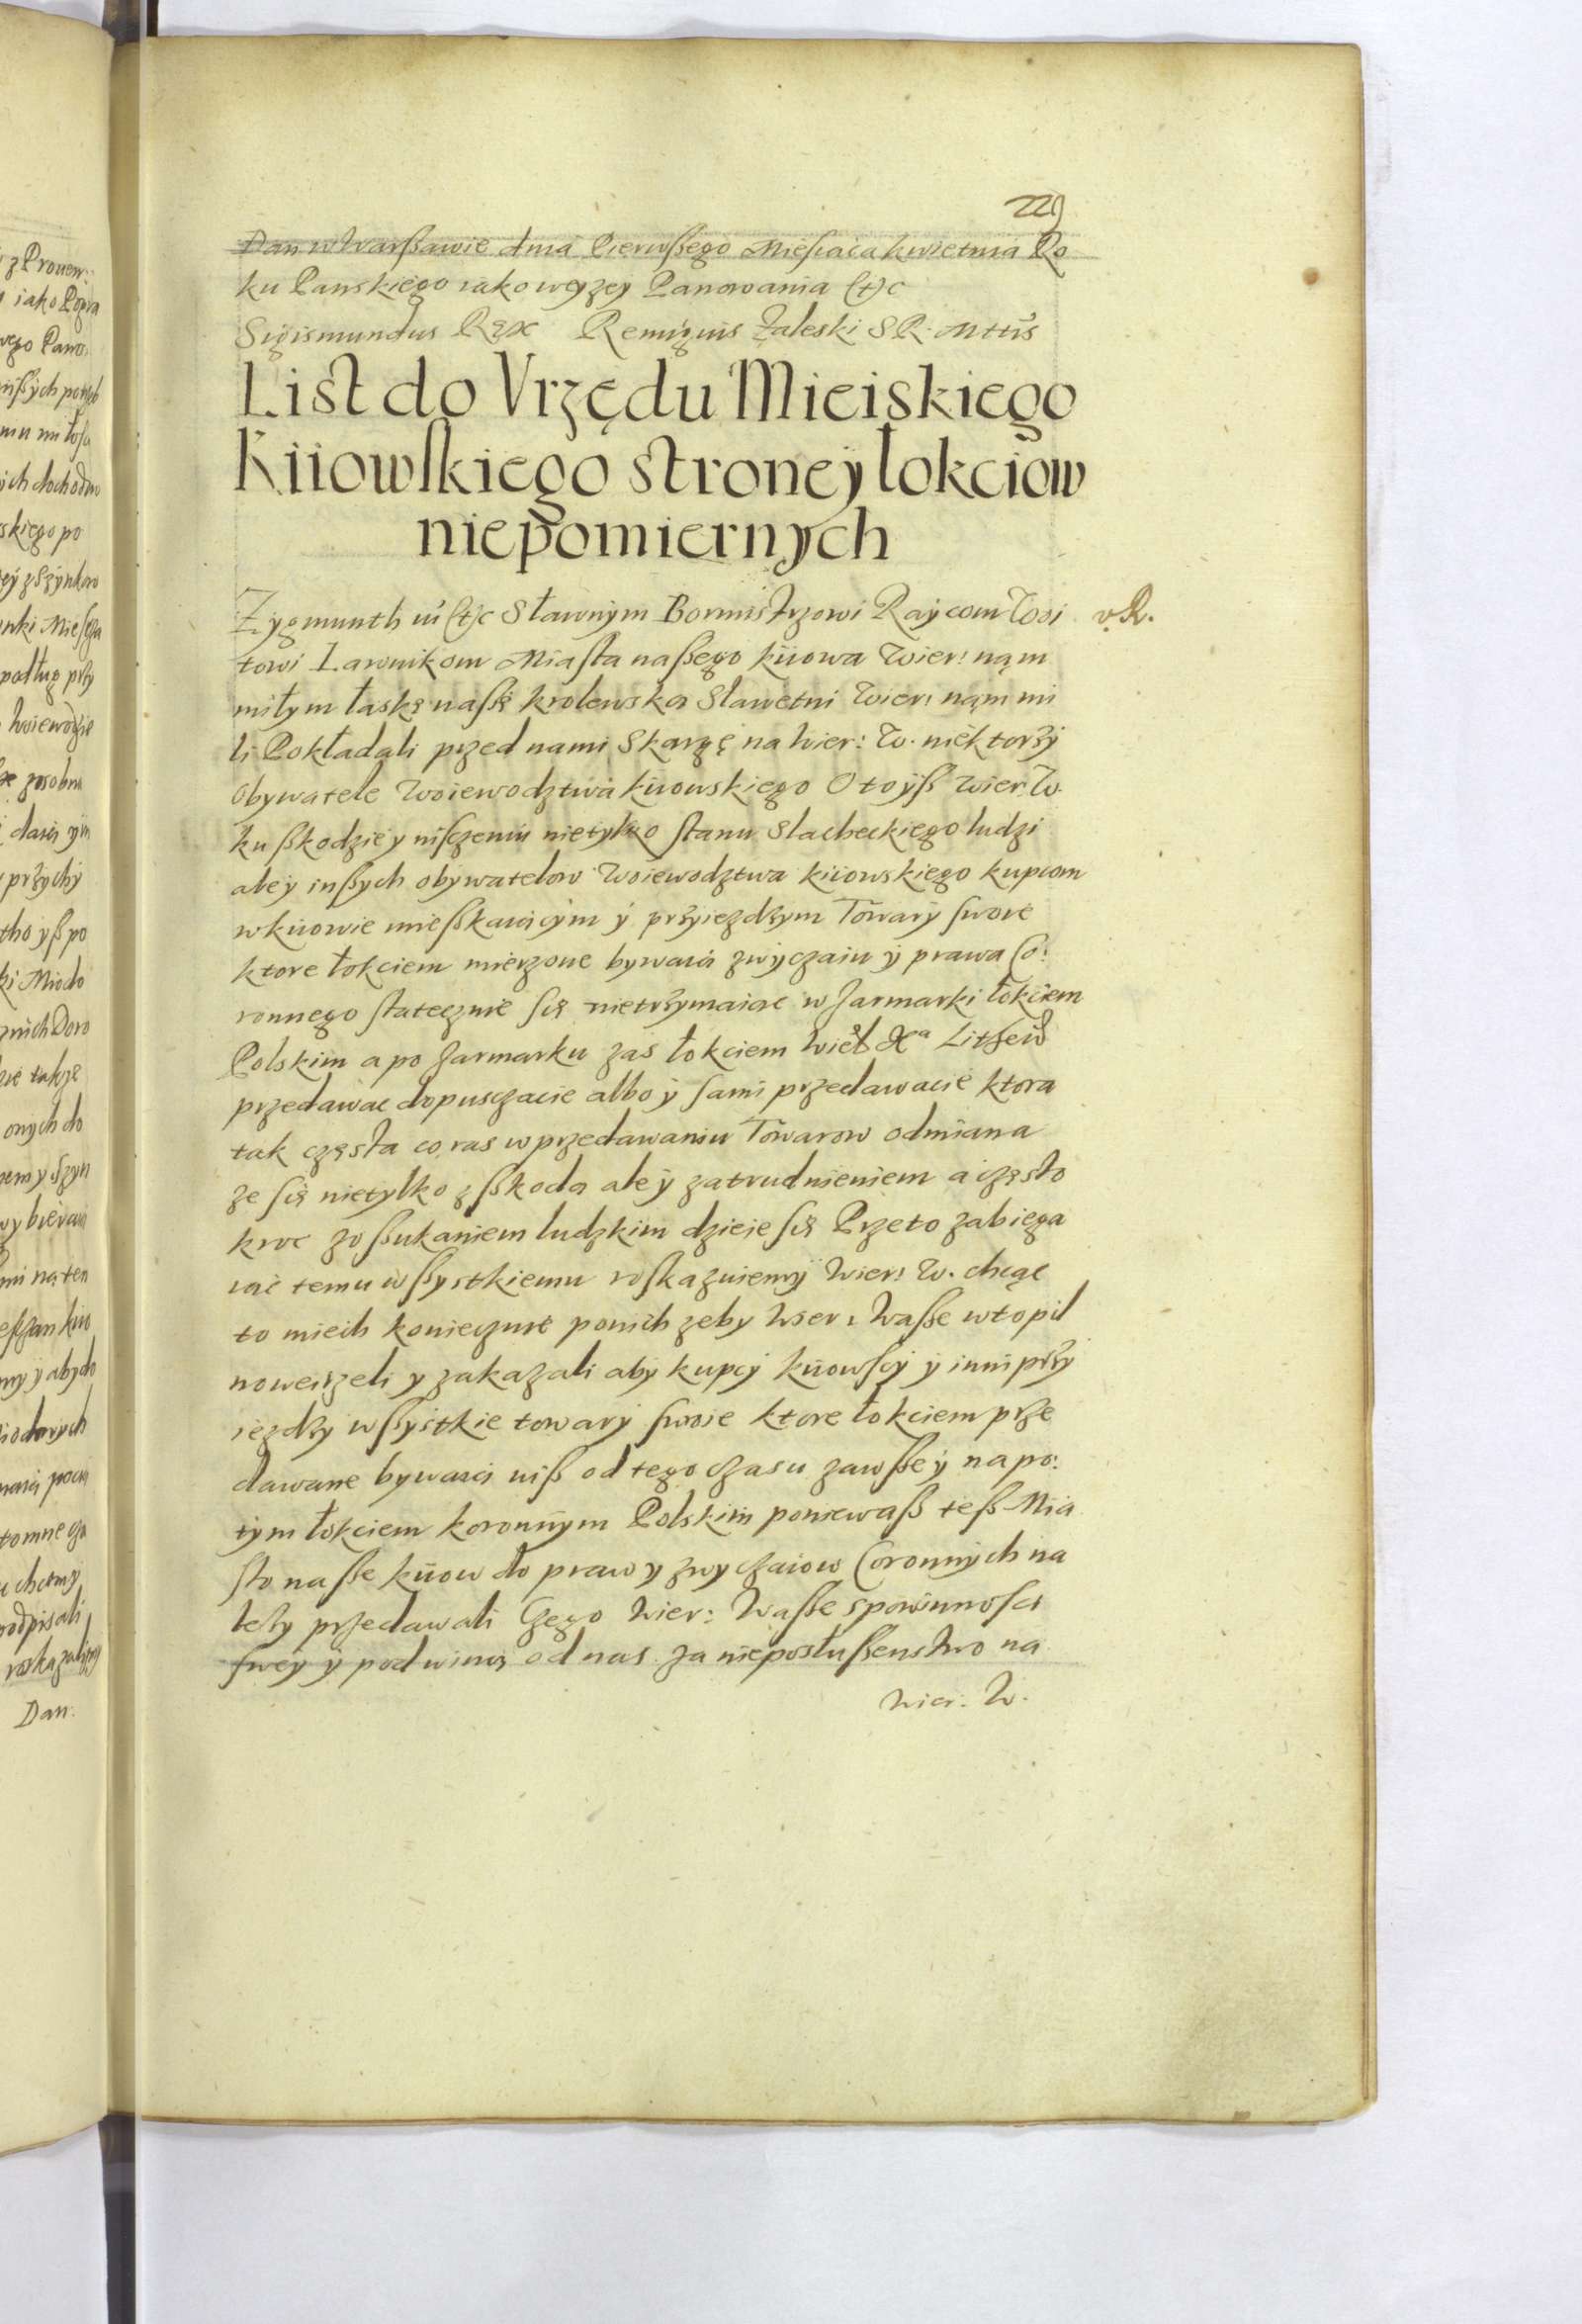 229
Dan w Warßawie dnia Pierwßego Miesiąca kwietnia Ro
ku Panskiego iako wyzey Panowania (t)c
Sigismundus Rex Remigius Zaleski S R. Mttis
List do Vrzędu Mieiskiego
Kiiowskiego stroney łokciow
niepomiernych
Zygmunth iii (t)c Sławnym Bormistrzowi Raycom Woi
v. R.
towi Lawnikom Miasta naßego kiiowa Wier: nąm
miłym łaskę naßę krolewską Sławetni Wier: nąm mi
li Pokładali przed nami Skargę na Wier: W. niektorzy
Obywatele Woiewodztwa kiiowskiego O to yß Wier. W.
ku ßkodzie y nisczeniu nietylko stanu Slacheckiego ludzi
ale y inßych obywatelow Woiewodztwa kiiowskiego kupcom
w kiiowie mießkaiącym y przyiezdzym Towary swoie
ktore łokciem mierzone bywaią zwyczaiu y prawa Co:
ronnego statecznie się nietrzymaiac w Jarmarki łokciem
Polskim a po Jarmarku zas łokciem Wiel Xa Litheiu
przedawac dopusczacie albo y sami przedawacie ktora
tak częsta co ras w przedawaniu Towarow odmiana
ze się nietylko z ßkodą ale y zatrudnieniem a często
kroc z oßukaniem ludzkim dzieie się Przeto zabiega
iac temu wßystkiemu roskazuiemy Wier: W. chcąc
to mieih koniecznie po nich zeby Wier: Waße w to pil
no weirzeli y zakazali aby kupcy kiiowscy y inni przy
iezdzy wßystkie towary swoie ktore łokciem prze
dawane bywaią uiß od tego czasu zawße y na po:
tym łokciem koronnym Polskim poniewaß teß Mia
sto naße kiiow do praw y zwyczaiow Coronnych na
lezy przedawali Czego Wier: Waße s powinnosci
swey y pod winą od nas za nieposłußenstwo na
Wier. W.